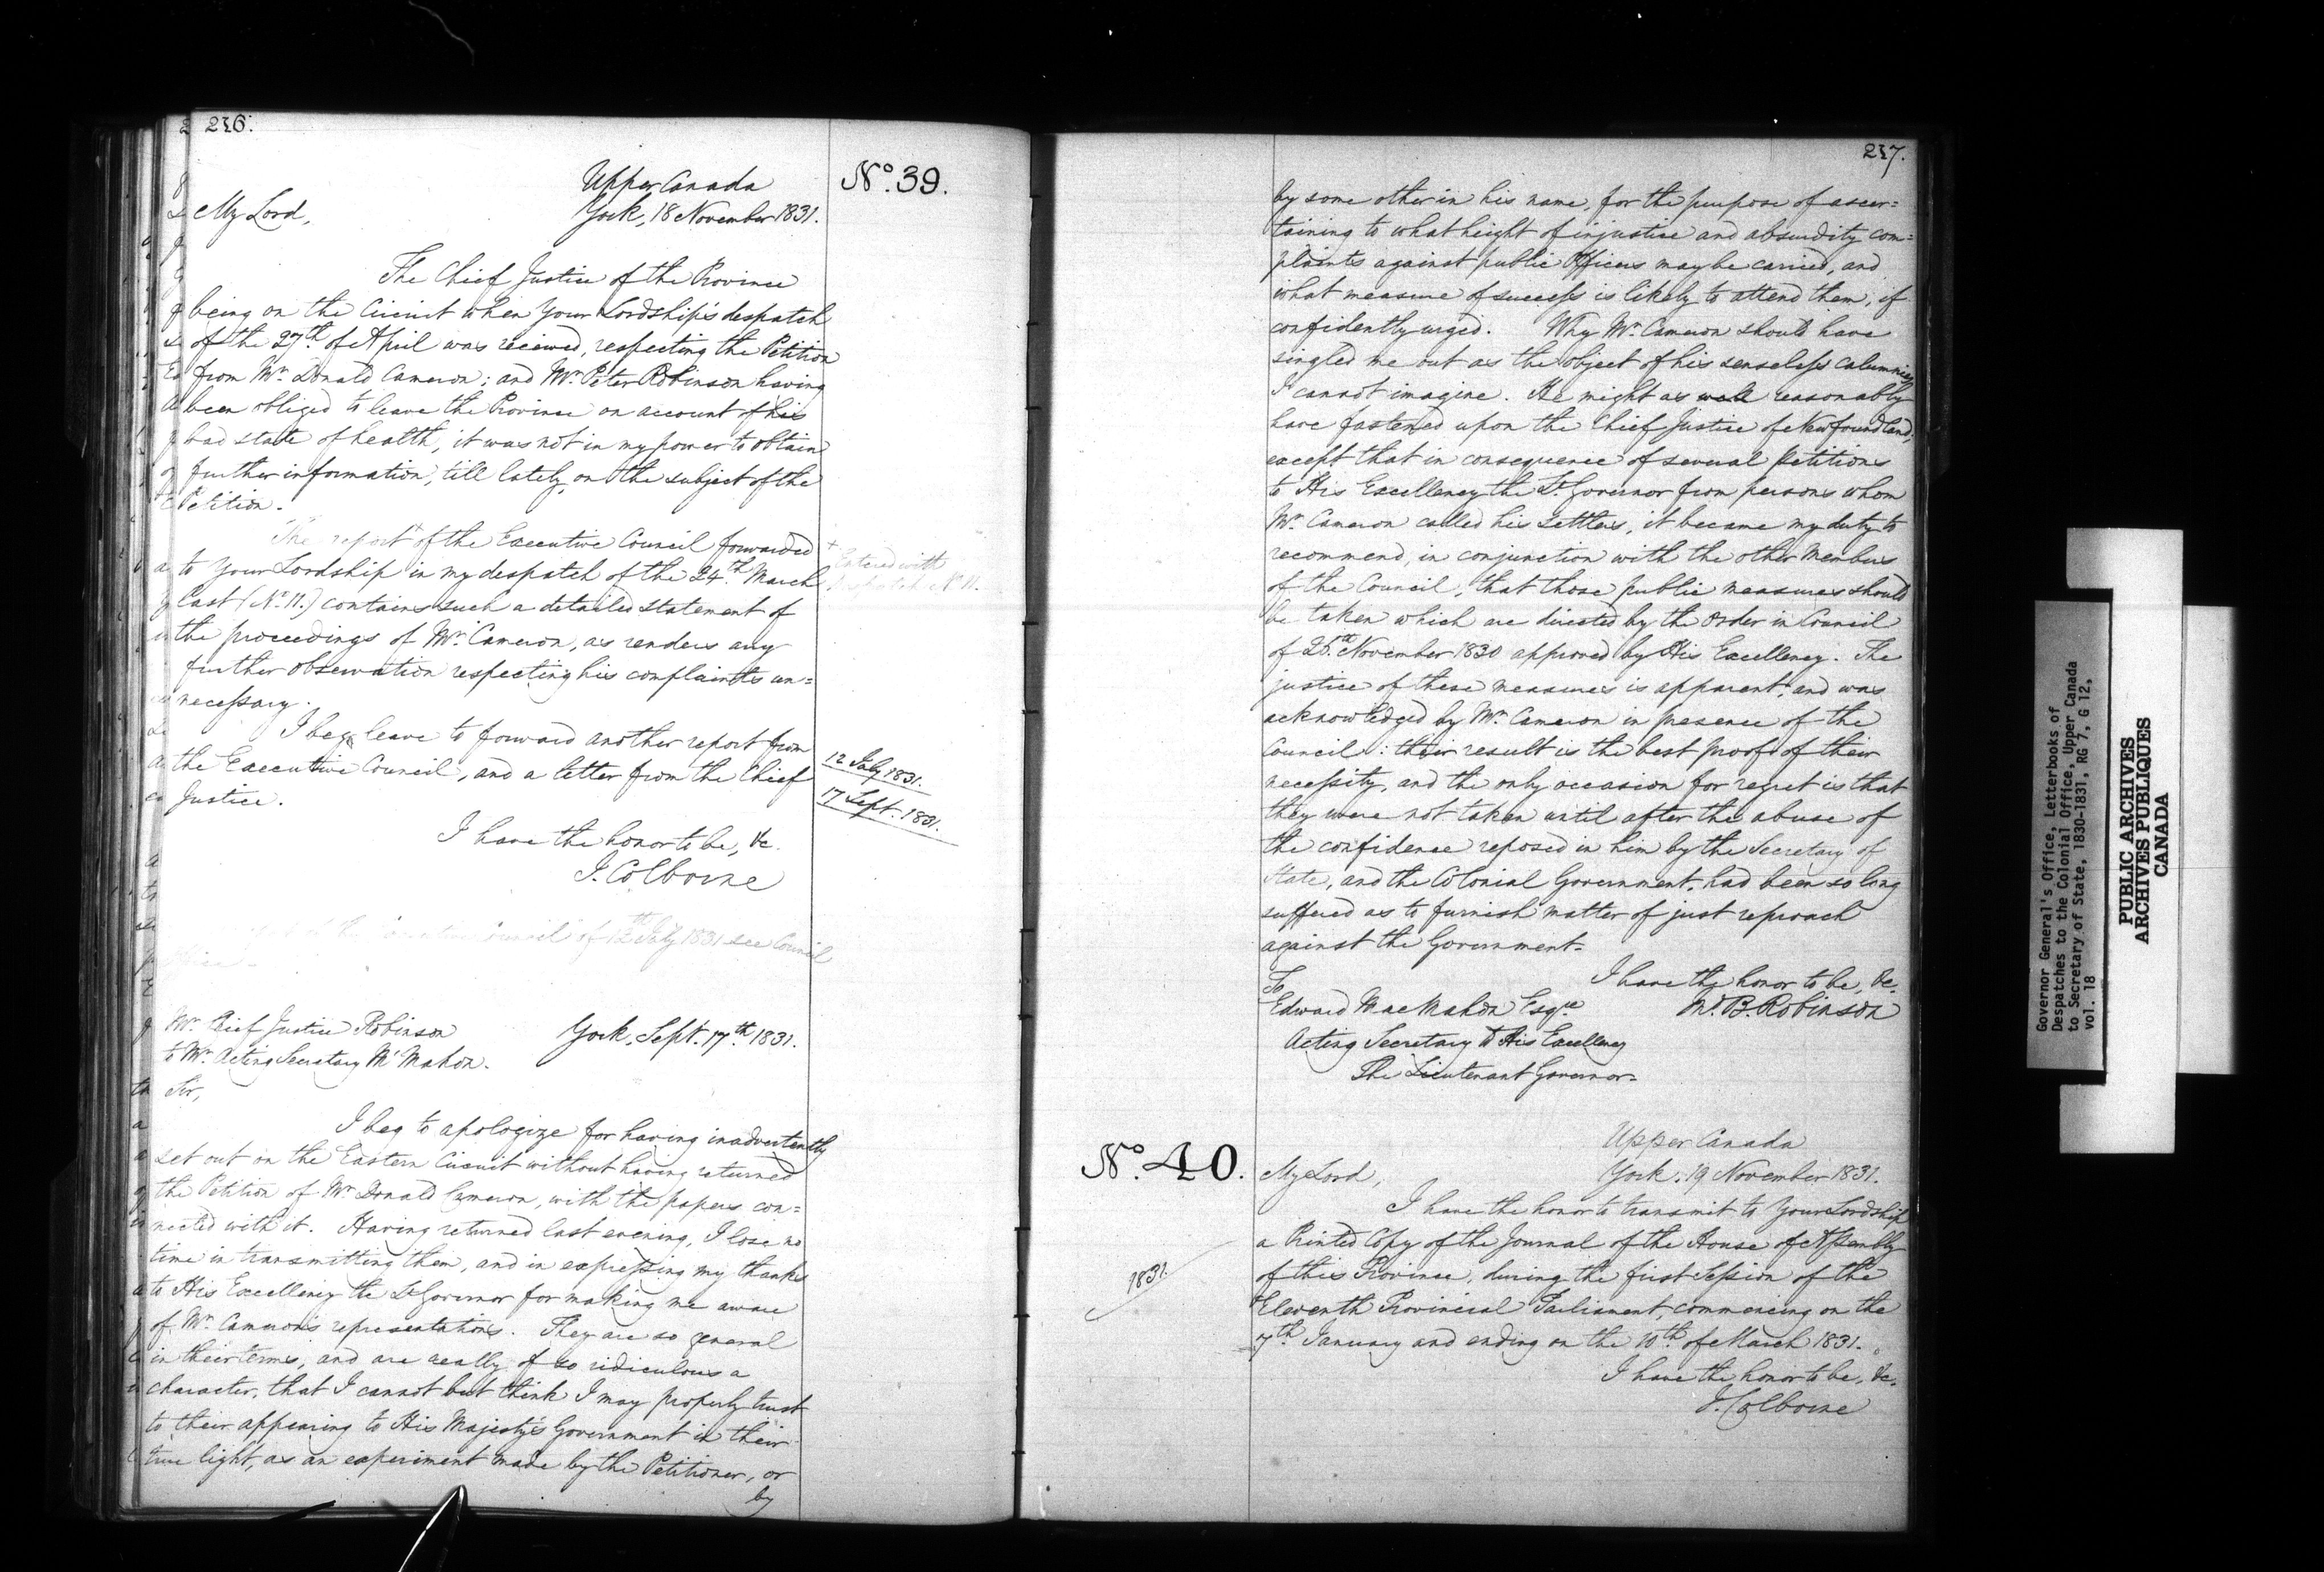 236.
No. 39.
Upper Canada
My Lord, York, 18 November 1831.
The Chief Justice of the Province
being on the Circuit when Your Lordship's despatch
of the 27th of April was received, respecting the Petition
from Mr. Donald Cameron; and Mr. Peter Robinson having
been obliged to leave the Province on account of his
bad state of health, it was not in my power to obtain
further information, till lately, on the subject of the
Petition.
The report of the Executive Council forwarded
to Your Lordship in my despatch of the 24th March
last (No. 11.) contains such a detailed statement of
the proceedings of Mr. Cameron, as renders any
further observation respecting his complaints un=
necessary.
+ Entered with
despatch No. 11.
I beg leave to forward another report from
the Executive Council, and a letter from the Chief
Justice.
12 July 1831.
17 Sept. 1831.
I have the honor to be, &c.
J. Colborne
Executive Council of 12th July 1831 see Council
Office
Mr. Chief Justice Robinson York, Sept. 17th 1831.
to Mr. Acting Secretary McMahon.
Sir,
I beg to apologize for having inadvertently
set out on the Eastern Circuit without having returned
the Petition of Mr. Donald Cameron, with the papers con=
nected with it. Having returned last evening, I lose no
time in transmitting them, and in expressing my thanks
to His Excellency the Lt Governor for making me aware
of Mr. Cameron's representations. They are so general
in their terms, and are really of so ridiculous a
character, that I cannot but think I may properly trust
to their appearing to His Majesty's Government in their
true light, as an experiment made by the Petitioner, or
by
237.
by some other in his name, for the purpose of ascer=
taining to what height of injustice and absurdity com=
plaints against public Officers may be carried, and
what measure of success is likely to attend them, if
confidently urged. Why Mr. Cameron should have
singled me out as the object of his senseless calumnies
I cannot imagine. He might as well reasonably
have fastened upon the Chief Justice of Newfoundland,
except that in consequence of several petitions
to His Excellency the Lt. Governor from persons whom
Mr. Cameron called his settlers, it became my duty to
recommend, in conjunction with the other Members
of the Council, that those public measures should
be taken which are directed by the Order in Council
of 25th November 1830 approved by His Excellency. The
justice of these measures is apparent, and was
acknowledged by Mr. Cameron in presence of the
Council: their result is the best proof of their
necessity, and the only occasion for regret is that
they were not taken until after the abuse of
the confidence reposed in him by the Secretary of
State, and the Colonial Government, had been so long
suffered as to furnish matter of just reproach
against the Government.
I have the honor to be, &c.
To
Edward MacMahon Esqre. J. B. Robinson
Acting Secretary to His Excellency
The Lieutenant Governor.
No. 40.
Upper Canada
My Lord, York, 19 November 1831.
I have the honor to transmit to Your Lordship
a Printed Copy of the Journal of the House of Assembly
of this Province, during the first Session of the
Eleventh Provincial Parliament, commencing on the
7th January and ending on the 10th of March 1831.
1831.
I have the honor to be, &c.
J. Colborne
Governor General's Office, Letterbooks of
Despatches to the Colonial Office, Upper Canada
to Secretary of State, 1830-1831, RG 7, G 12,
vol. 18
PUBLIC ARCHIVES
ARCHIVES PUBLIQUES
CANADA